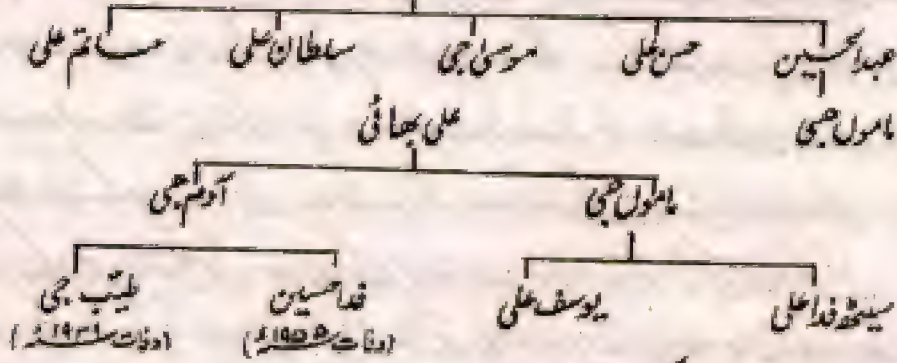 عبدالحسین حسن علی موسیٰ جی سلطان علی حاتم علی
مامول جی
علی بھائی
مامول جی آدم جی
سیٹھ فدا علی یوسف علی فدا حسین طیب جی
(وفات ۱۹۵۵ء) (وفات ۱۹۳۱ء)